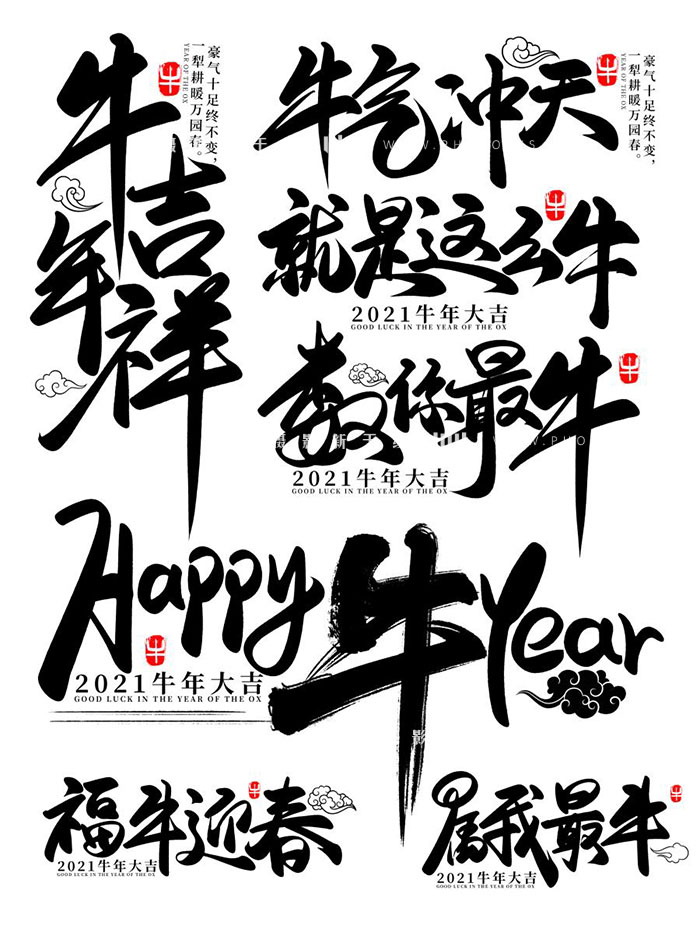 牛年吉祥
豪气十足终不变，
一犁耕暖万园春。
YEAR OF THE OX
牛
牛气冲天
豪气十足终不变，
一犁耕暖万园春。
YEAR OF THE OX
牛
就是这么牛
牛
2021牛年大吉
GOOD LUCK IN THE YEAR OF THE OX
数你最牛
牛
2021牛年大吉
GOOD LUCK IN THE YEAR OF THE OX
Happy 牛 Year
牛
2021牛年大吉
GOOD LUCK IN THE YEAR OF THE OX
福牛迎春
牛
2021牛年大吉
GOOD LUCK IN THE YEAR OF THE OX
属我最牛
牛
2021牛年大吉
GOOD LUCK IN THE YEAR OF THE OX